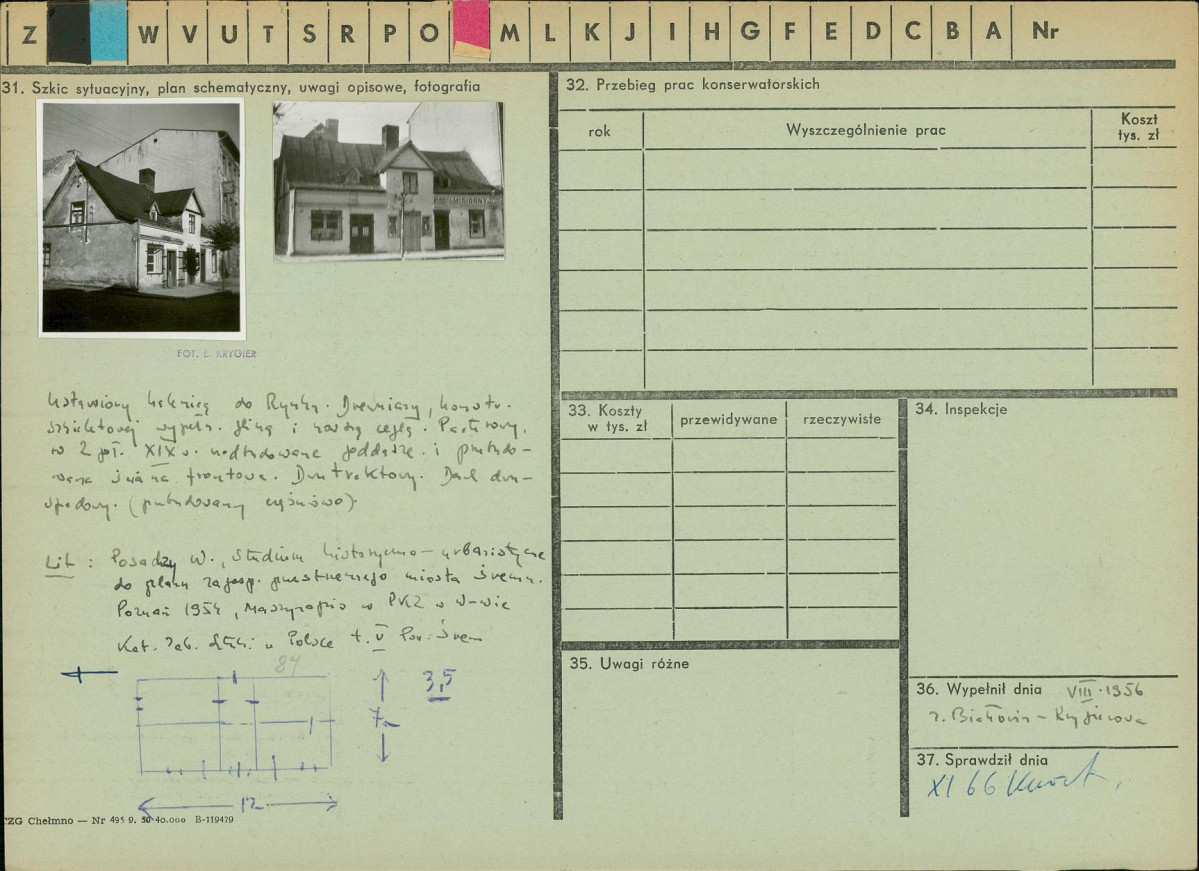 Z W V U T S R P O M L K J I H G F E D C B A Nr
31. Szkic sytuacyjny, plan schematyczny, uwagi opisowe, fotografia
FOT. E. KRYGIER
Ustawiony kalenicą do Rynku. Drewniany, konstr.
szkieletowej wypełn. gliną i cegłą. Parterowy,
w 2 poł. XIX w. nadbudowane poddasze i przebudo-
wana ściana frontowa. Dwutraktowy. Dach dwu-
spadowy. (przebudowany częściowo).
Lit : Posadzy W., Studium historyczno-urbanistyczne
do planu zagosp. przestrzennego miasta Śremu.
Poznań 1954, Maszynopis w PKZ w W-wie
Kat. Zab. Sztuki w Polsce t. V Pow. Śrem
84
3,5
7
12
CZG Chełmno — Nr 495 9. 50 40.000 B-119479
32. Przebieg prac konserwatorskich
rok
Wyszczególnienie prac
Koszt
tys. zł
33. Koszty
w tys. zł
przewidywane
rzeczywiste
34. Inspekcje
35. Uwagi różne
36. Wypełnił dnia VIII·1956
37. Sprawdził dnia
XI 66